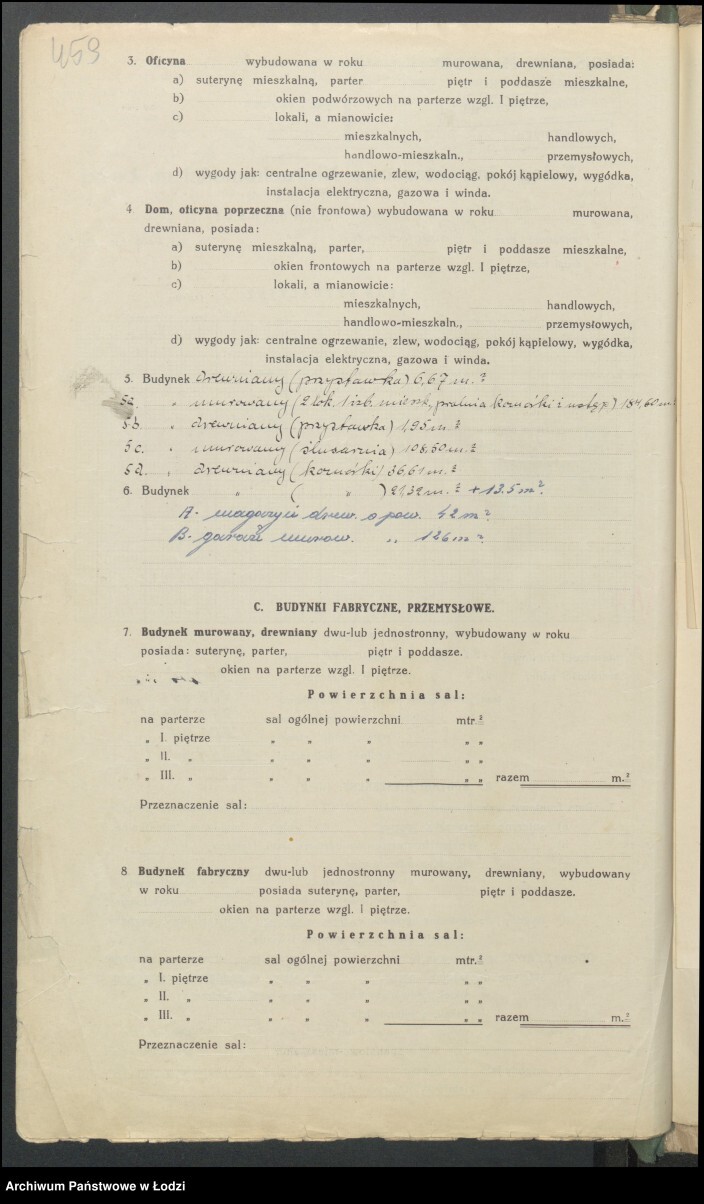 459
3. Oficyna wybudowana w roku murowana, drewniana, posiada:
a) suterynę mieszkalną, parter piętr i poddasze mieszkalne,
b) okien podwórzowych na parterze wzgl. I piętrze,
c) lokali, a mianowicie:
mieszkalnych, handlowych,
handlowo-mieszkaln., przemysłowych,
d) wygody jak: centralne ogrzewanie, zlew, wodociąg, pokój kąpielowy, wygódka,
instalacja elektryczna, gazowa i winda.
4 Dom, oficyna poprzeczna (nie frontowa) wybudowana w roku murowana,
drewniana, posiada:
a) suterynę mieszkalną, parter, piętr i poddasze mieszkalne,
b) okien frontowych na parterze wzgl. I piętrze,
c) lokali, a mianowicie:
mieszkalnych, handlowych,
handlowo-mieszkaln., przemysłowych,
d) wygody jak: centralne ogrzewanie, zlew, wodociąg, pokój kąpielowy, wygódka,
instalacja elektryczna, gazowa i winda.
5. Budynek drewniany (przystawka) 6,67 m.²
5a. " murowany (2 lok. 1 izb. mieszk, pralnia komórki i ustęp) 184,60 m²
5b. " drewniany (przystawka) 1,95 m.²
5c. " murowany (ślusarnia) 108.50 m.²
5d. " drewniany (komórki) 36,61 m.²
6. Budynek " ( " ) 21,32 m.² + 13.5 m².
A - magazyn drew. o pow. 42 m².
B - garaże murow. " 126 m².
C. BUDYNKI FABRYCZNE, PRZEMYSŁOWE.
7. Budynek murowany, drewniany dwu-lub jednostronny, wybudowany w roku
posiada: suterynę, parter, piętr i poddasze.
okien na parterze wzgl. I piętrze.
Powierzchnia sal:
na parterze sal ogólnej powierzchni mtr.²
„ I. piętrze „ „ „ „ „
„ II. „ „ „ „ „ „
„ III. „ „ „ „ „ „ razem m.²
Przeznaczenie sal:
8 Budynek fabryczny dwu-lub jednostronny murowany, drewniany, wybudowany
w roku posiada suterynę, parter, piętr i poddasze.
okien na parterze wzgl. I piętrze.
Powierzchnia sal:
na parterze sal ogólnej powierzchni mtr.²
„ I. piętrze „ „ „ „ „
„ II. „ „ „ „ „ „
„ III. „ „ „ „ „ „ razem m.²
Przeznaczenie sal:
Archiwum Państwowe w Łodzi